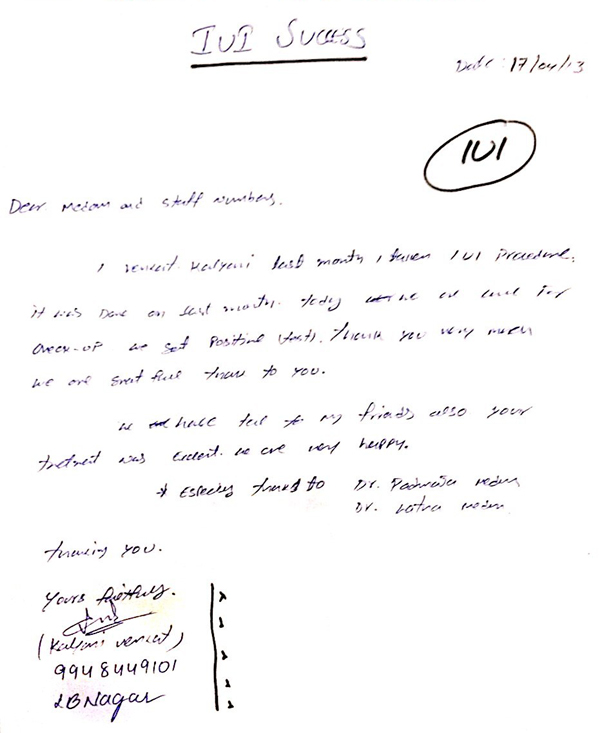 IUI Success
Date: 17/04/13
IUI
Dear Medam and Staff numbers,
I venkat Kalyani last month I taken IUI Procedure.
it was Done on last month. today we are come for
check-up we get Positive thank you very much
we are great full thanks to you.
we have tell to my friends also your
tretment was we are very happy.
* Especially thanks to Dr. Padmaja medam
Dr. Latha medam
thanking you.
Yours faithfully.
(Kalyani venkat)
9948449101
LB Nagar